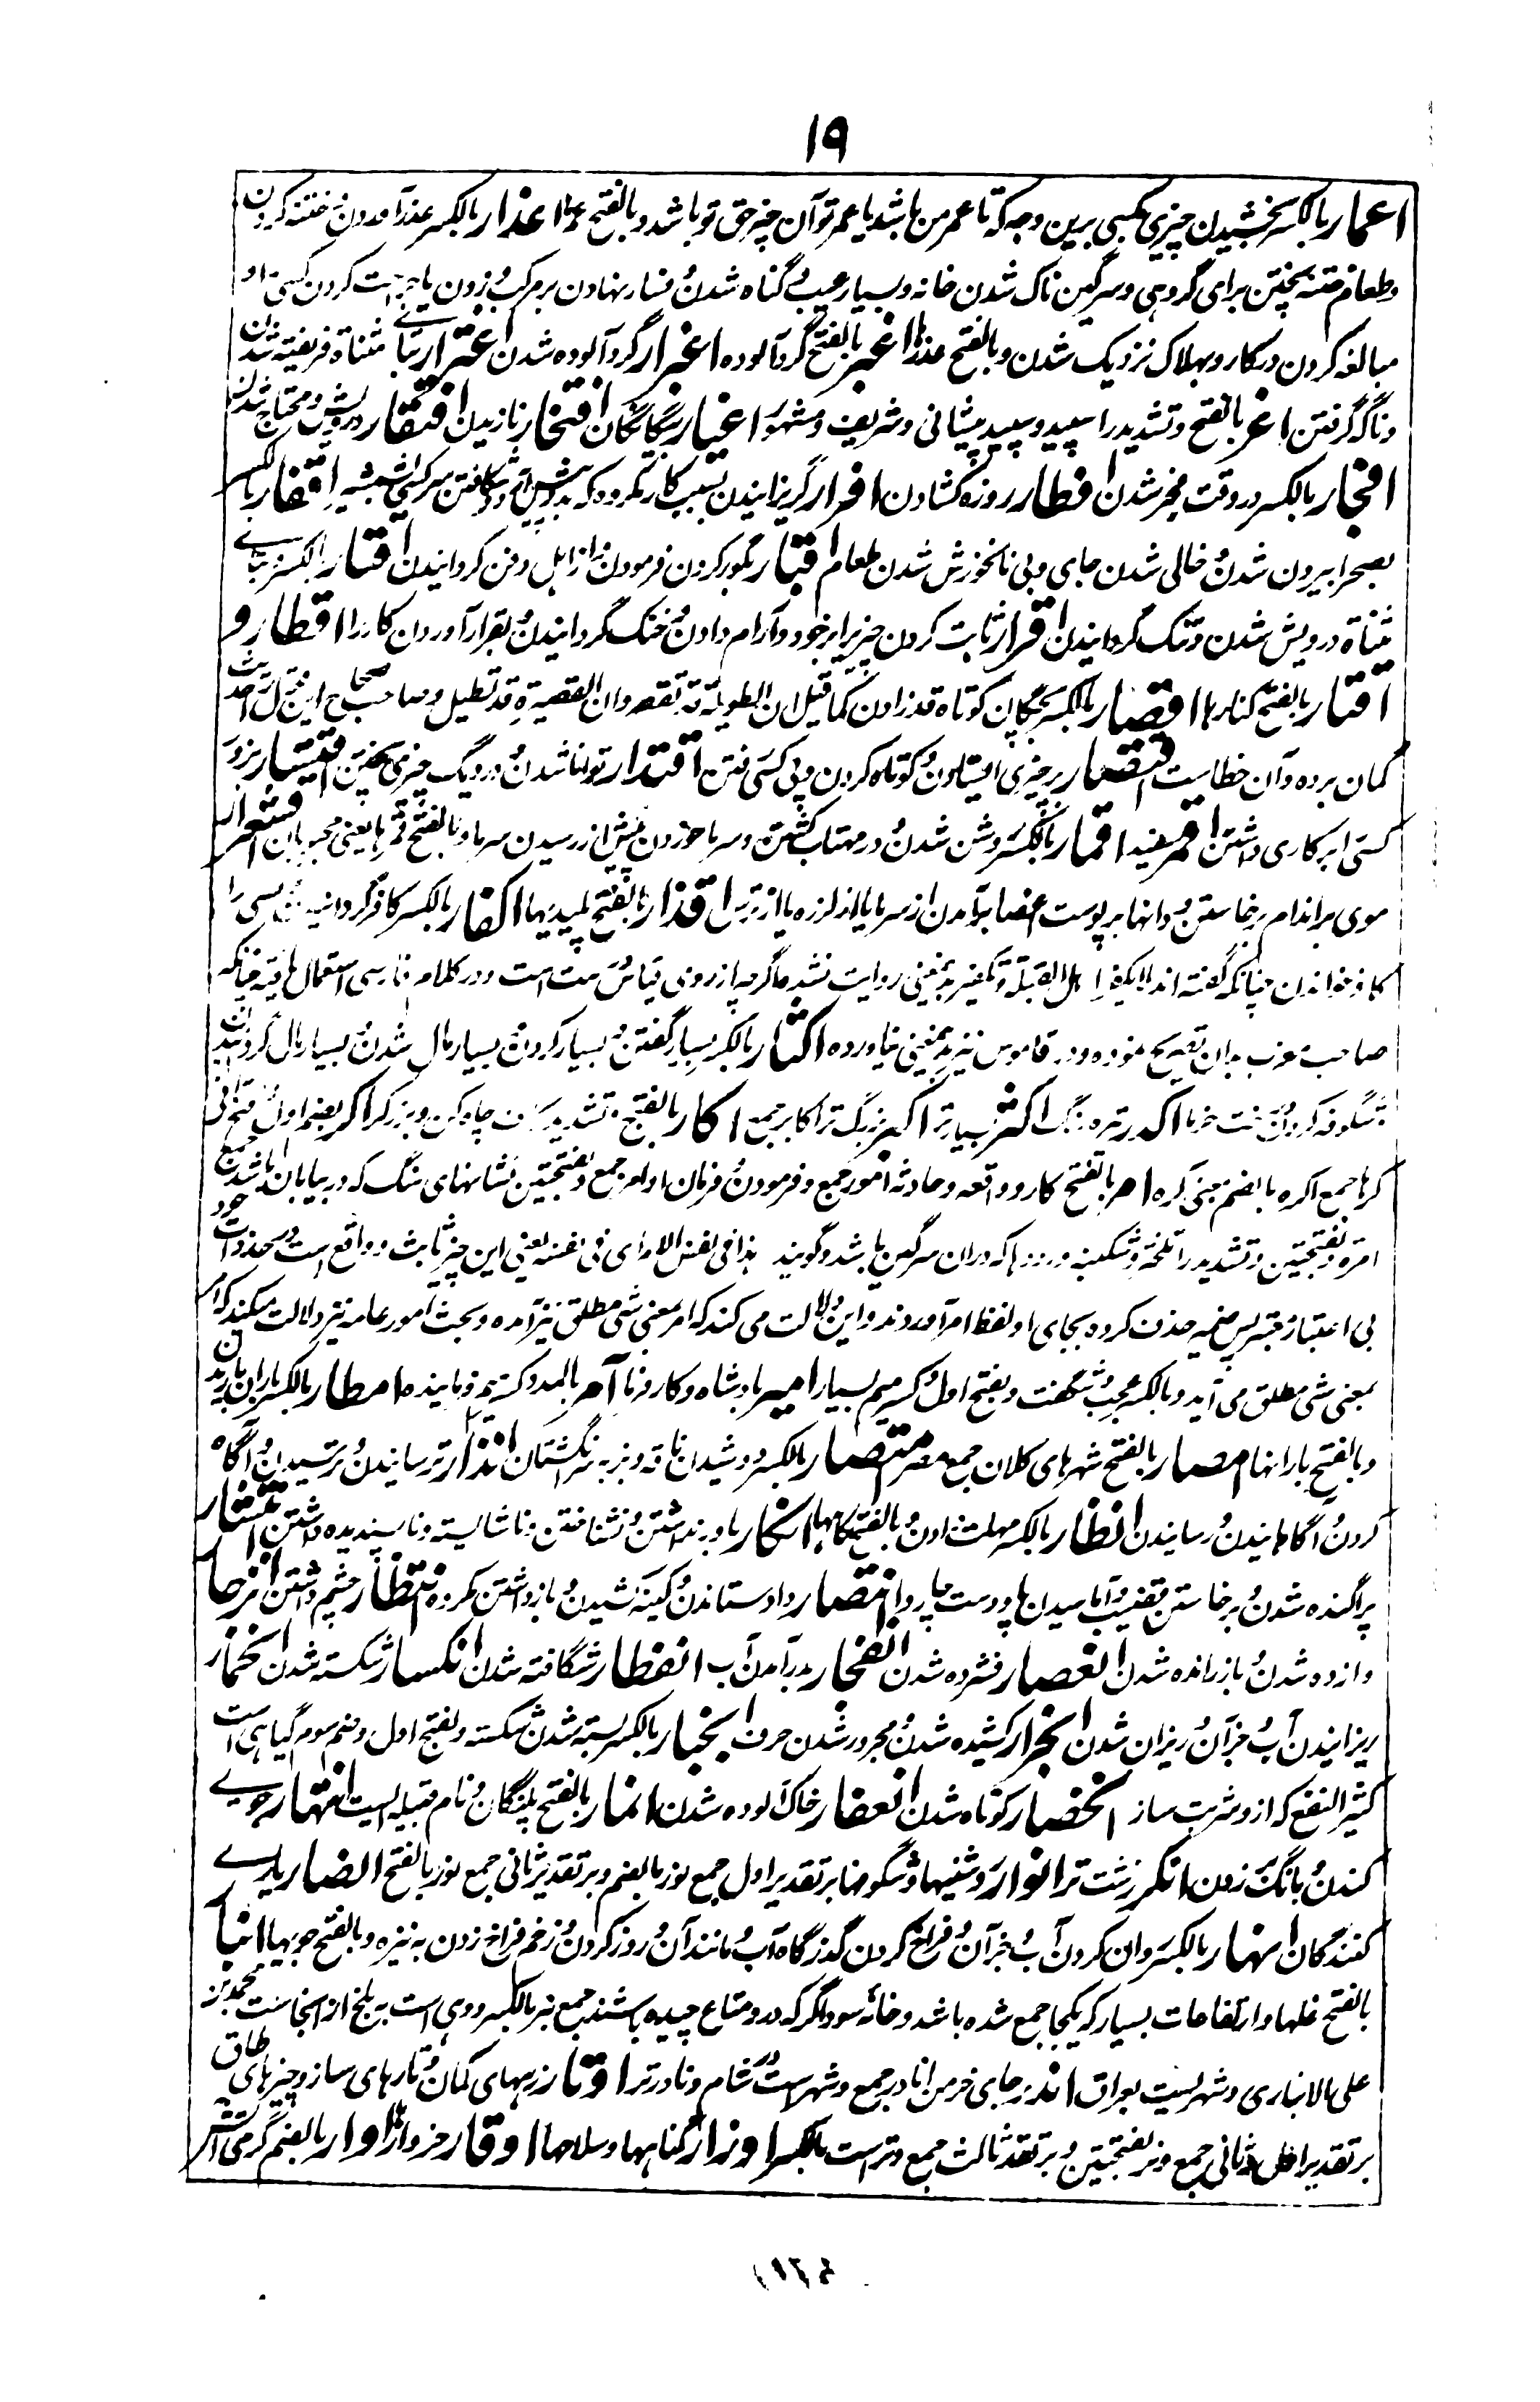 ۱۹
اعمار بالکسر بخشیدن چیزی بکسی برین وجه که تا عمر من باشد یا عمر تو آن چیز حق تو باشد و بالفتح عمرها اعذار بالکسر عذر آوردن و ختنه کردن
و طعام ختنه پختن برای گروهی و سرگین ناک شدن خانه و بسیار عیب و گناه شدن و فسار نهادن بر مرکب و زدن یا جراحت کردن کسی را و
مبالغه کردن در کار و بهلاک نزدیک شدن و بالفتح عذرها اغبر بالفتح گردآلوده اغبرار گردآلوده شدن اغترار بتای مثناة فریفته شدن
و ناگه گرفتن اغر بالفتح و تشدید را سپید و سپید پیشانی و شریف و مشهور اغیار بیگانگان افتخار نازیدن افتقار درویش و محتاج شدن
افجار بالکسر در وقت فجر شدن افطار روزه کشادن افرار گریزانیدن بسبب کار مکروه که بدو پیش آید و شکافتن سر کسی بشمشیر اقفار بالکسر
بصحرا بیرون شدن و خالی شدن جای و بی نانخورش شدن طعام اقبار بگور کردن فرمودن و از اهل دفن گردانیدن اقتار بالکسر بتای
مثناة درویش شدن و تنگ گردانیدن اقرار ثابت کردن چیزی را بر خود و آرام دادن و خنک گردانیدن و بقرار آوردن کار را اقطار و
اقتار بالفتح کنارها اقصار بالکسر بچگان کوتاه قد زادن کما قیل ان الطویلة قد تقصر وان القصیرة قد تطیل و صاحب صحاح این مثل را حدیث
گمان برده و آن خطاست اقتصار بر چیزی ایستادن و کوتاه کردن و پی کسی رفتن اقتدار توانا شدن و در دیگ چیزی پختن اقتسار بزور
کسی را بر کاری داشتن اقمر سفید اقمار بالکسر روشن شدن و در مهتاب گشتن و سرما خوردن میش از رسیدن سرما و بالفتح قمرها یعنی مجموع این اقشعرار
موی بر اندام برخاستن و دانها بر پوست اعضا برآمدن از سرما یا از لرزه یا از تب اقذار بالفتح پلیدیها اکفار بالکسر کافر گردانیدن کسی را
کافر خواندن چنانکه گفته اند لا یکفر اهل القبلة و تکفیر بدین معنی روایت نشده اگرچه از روی قیاس درست است و در کلام فارسی استعمال یافته چنانکه
صاحب مغرب بدان تصریح نموده و در قاموس نیز بدین معنی نیاورده اکثار بالکسر بسیار گفتن و بسیار کردن و بسیار مال شدن و بسیار مال گردانیدن
و شگوفه کردن درخت خرما اکدر تیره رنگ اکثر بسیارتر اکبر بزرگ تر اکابر جمع اکار بالفتح و تشدید کاف چاه کن و برزگر اکر بضم اول و فتح ثانی
کرها جمع اکره بالضم یعنی کره امر بالفتح کار و واقعه و حادثه امور جمع و فرمودن و فرمان اوامر جمع و بفتحتین نشانهای سنگ که در بیابان باشد جمع
امره و بفتحتین و تشدید را تلخ تر و شکنبه و رودها که دران سرگین باشد و گویند هذا فی نفس الامر ای فی نفسه یعنی این چیز ثابت و واقع است در حد ذات خود
بی اعتبار معتبر پس ضمیر حذف کرده بجای او لفظ امر آوردند و این دلالت می کند که امر بمعنی شی مطلق نیز آمده و بحث امور عامه نیز دلالت میکند که امر
بمعنی شی مطلق می آید و بالکسر عجیب و شگفت و بفتح اول و کسر میم بسیار امیر پادشاه و کارفرما آمر بالمد و کسر میم فرماینده امطار بالکسر باران بارانیدن
و بالفتح بارانها امصار بالفتح شهرهای کلان جمع مصر امتصار بالکسر دوشیدن ناقه و بز بسر انگشتان انذار ترسانیدن و ترسیدن و آگاه
کردن و آگاهانیدن و رسانیدن انظار بالکسر مهلت دادن و بالفتح نگاهها انکار باور نداشتن و نشناختن و ناشایسته و ناپسندیده داشتن انتشار
پراگنده شدن و برخاستن قضیب و آماسیدن پا و دست چارپا انتصار داد ستاندن و کینه کشیدن و بازداشتن مکروه انتظار چشم داشتن انزجار
وازده شدن و باز رانده شدن انعصار فشرده شدن انفجار برآمدن آب انفطار شگافته شدن انکسار شکسته شدن انحدار
ریزانیدن آب و جز آن و ریزان شدن انجرار کشیده شدن و مجرور شدن حرف انجبار بالکسر بسته شدن شکسته و بفتح اول و ضم سوم گیاهی است
کثیر النفع که ازو شربت سازند انحصار کوتاه شدن انعفار خاک آلوده شدن انمار بالفتح پلنگان و نام قبیله ایست انتهار جوی
کندن و بانگ زدن انکر زشت تر انوار روشنیها و شگوفها بر تقدیر اول جمع نور بالضم و بر تقدیر ثانی جمع نور بالفتح انصار یاری
کنندگان انهار بالکسر روان کردن آب و جز آن و فراخ کردن گذرگاه آب و مانند آن و روز کردن و زخم فراخ زدن به نیزه و بالفتح جویها انبار
بالفتح غلها و ارتفاعات بسیار که یکجا جمع شده باشد و خانه سوداگر که درو متاع چیده باشند جمع نبر بالکسر و دهی است به بلخ از انجاست محمد بن
علی الانباری و شهریست بعراق اندر جای خرمن انادر جمع و شهریست در شام و نادرتر اوتار زههای کمان و تارهای ساز و چیزهای طاق
بر تقدیر اول و ثانی جمع وتر بفتحتین و بر تقدیر ثالث جمع وتر است بالکسر اوزار گناهها و سلاحها اوقار خروارها اوار بالضم گرمی آتش